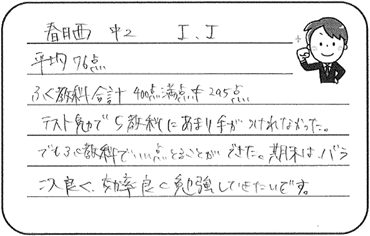 春日西 中2 I、I
平均76点
ふく教科合計 400点満点中 295点
テスト勉で5教科にあまり手がつけれなかった。
でもふく教科でいい点とることができた。期末は、バラ
ンス良く、効率良く勉強していきたいです。